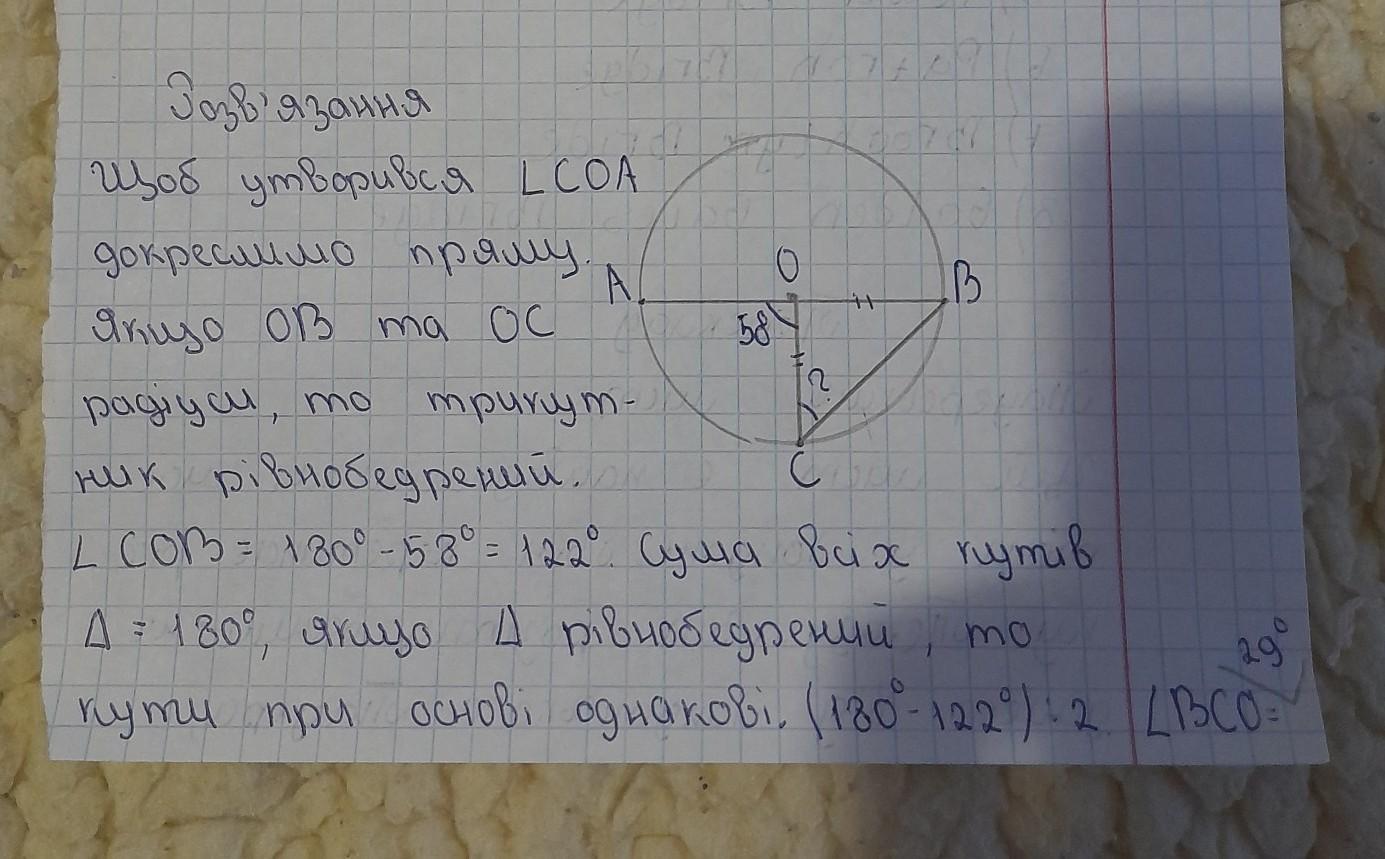 Розв'язання
Щоб утворився ∠COA
докреслимо пряму.
Якщо OB та OC
радіуси, то трикут-
ник рівнобедрений.
∠COB = 180° - 58° = 122°. Сума всіх кутів
Δ = 180°, якщо Δ рівнобедрений, то
кути при основі однакові. (180° - 122°) : 2 ∠BCO =
29°
A
O
B
58
?
C